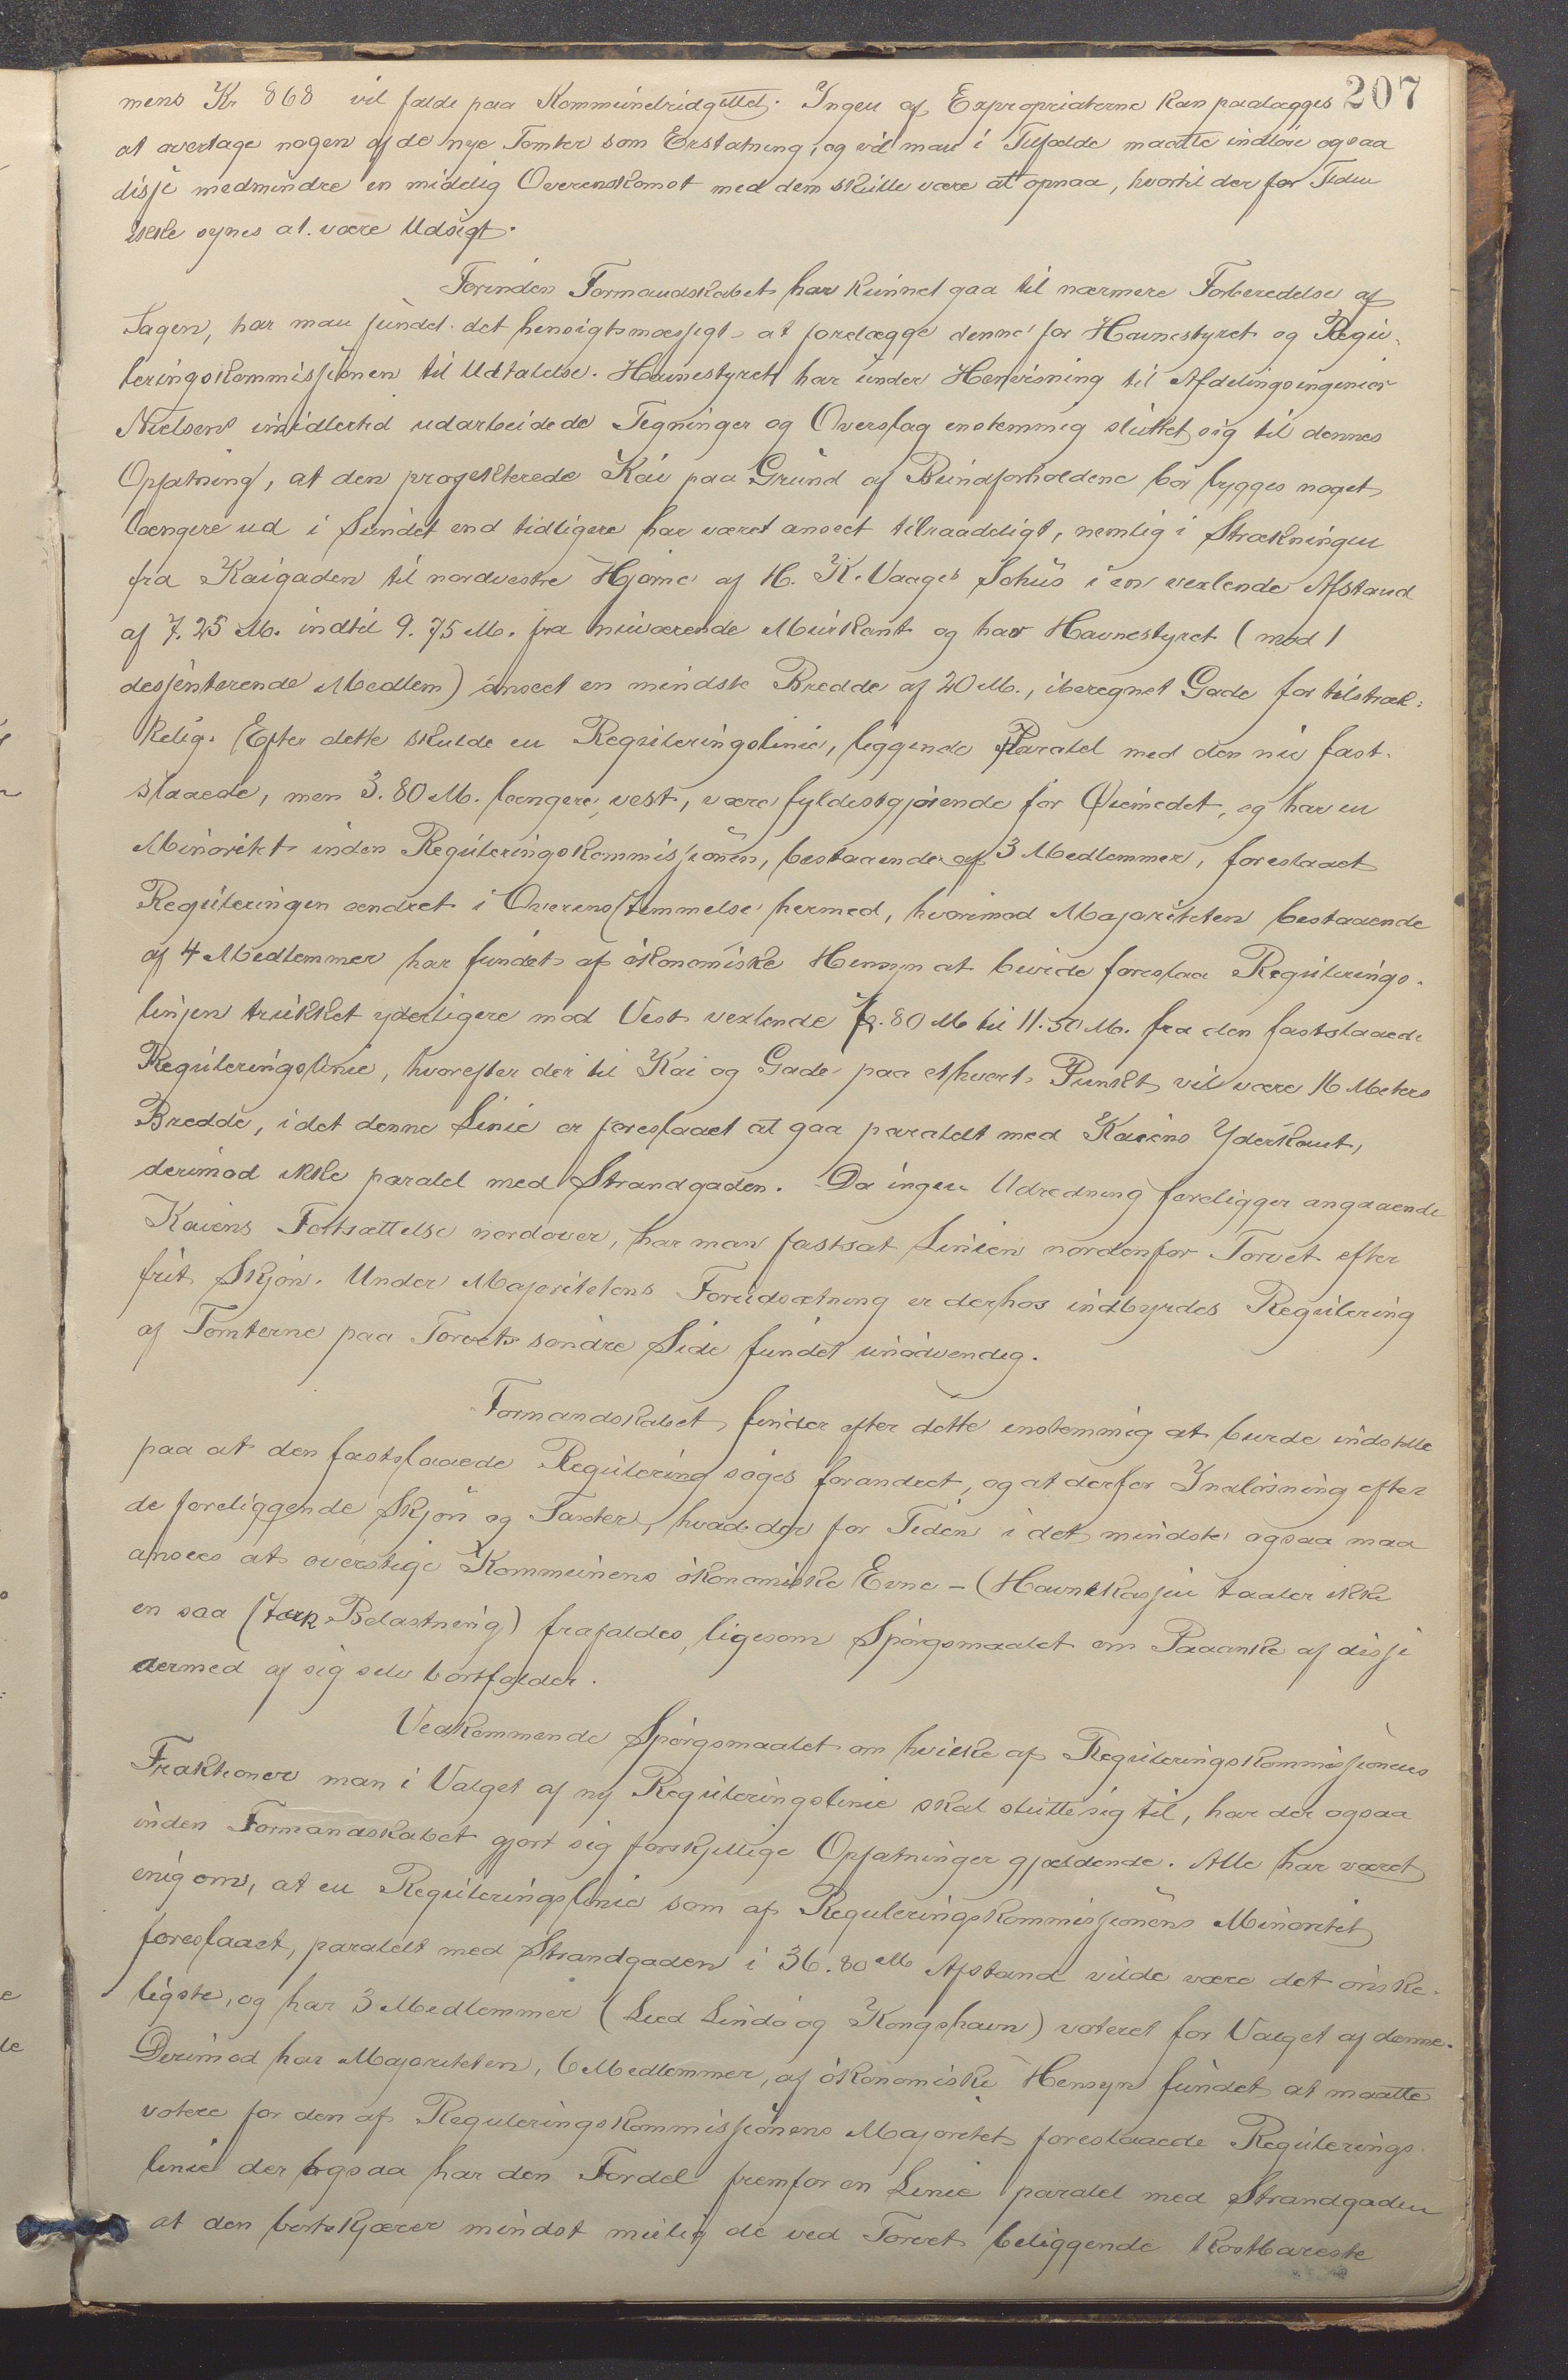 207
mens Kr 868 vil falde paa Kommunebudgettet. Ingen af Expropriaterne kan paalægges
at overtage nogen af de nye Tomter som Erstatning, og vil man i Tilfælde maatte indløse ogsaa
disse medmindre en mindelig Overenskomst med dem skulde være at opnaa, hvortil der for Tiden
ikke synes at være Udsigt.
Forinden Formandskabet har kunnet gaa til nærmere Forberedelse af
Sagen, har man fundet det hensigtsmæssigt at forelægge denne for Havnestyret og Regu-
leringskommissionen til Udtalelse. Havnestyret har under Henvisning til Afdelingsingeniør
Nielsens imidlertid udarbeidede Tegninger og Overslag enstemmig sluttet sig til dennes
Opfatning, at den projekterede Kai paa Grund af Bundforholdene bør bygges noget
længere ud i Sundet end tidligere har været anseet tilraadeligt, nemlig i Strækningen
fra Kaigaden til nordvestre Hjørne af H. K. Vaages Søhus i en vexlende Afstand
af 7.25 M. indtil 9.75 M. fra nuværende Murkant og har Havnestyret (mod 1
dessenterende Medlem) anseet en mindste Bredde af 20 M., iberegnet Gade for tilstræk:
kelig. Efter dette skulde en Reguleringslinie, liggende Paralel med den nu fast-
slaaede, men 3.80 M. længere vest, være fyldestgjørende for Øiemedet, og har en
Minoritet inden Reguleringskommissionen, bestaaende af 3 Medlemmer, foreslaaet
Reguleringen ændret i Overensstemmelse hermed, hvorimod Majoriteten bestaaende
af 4 Medlemmer har fundet af økonomiske Hensyn at burde foreslaa Regulerings-
linjen trukket yderligere mod Vest vexlende .80 M til 11.50 M. fra den fastslaaede
Reguleringslinie, hvorefter der til Kai og Gade paa ethvert Punkt vil være 16 Meters
Bredde, idet denne Linie er foreslaaet at gaa paralelt med Kaiens Yderkant,
derimod ikke paralel med Strandgaden. Da ingen Udredning foreligger angaaende
Kaiens Fortsættelse nordover, har man fastsat Linien nordenfor Torvet efter
frit Skjøn. Under Majoritetens Forudsætning er derhos indbyrdes Regulering
af Tomterne paa Torvets søndre Side fundet unødvendig.
Formandskabet finder efter dette enstemmig at burde indstille
paa at den fastslaaede Regulering søges forandret, og at derfor Indløsning efter
de foreliggende Skjøn og Taxter, hvad der for Tiden i det mindste ogsaa maa
ansees at overstige Kommunens økonomiske Evne – (Havnekassen taaler ikke
en saa stærk Belastning) frafaldes, ligesom Spørgsmaalet om Paaanke af disse
dermed af sig selv bortfalder.
Vedkommende Spørgsmaalet om hvilke af Reguleringskommissionens
Fraktioner man i Valget af ny Reguleringslinie skal slutte sig til, har der ogsaa
inden Formandskabet gjort sig forskjellige Opfatninger gjældende. Alle har været
enig om, at en Reguleringslinie som af Reguleringskommissionens Minoritet
foreslaaet, paralelt med Strandgaden i 36.80 M Afstand vilde være det ønske-
ligste, og har 3 Medlemmer (Lied Lindø og Kongshavn) voteret for Valget af denne.
Derimod har Majoriteten, 6 Medlemmer, af økonomiske Hensyn fundet at maatte
votere for den af Reguleringskommissionens Majoritet foreslaaede Regulerings-
linie der ogsaa har den Fordel fremfor en Linie paralel med Strandgaden
at den bortskjærer mindst mulig de ved Torvet beliggende kostbareste